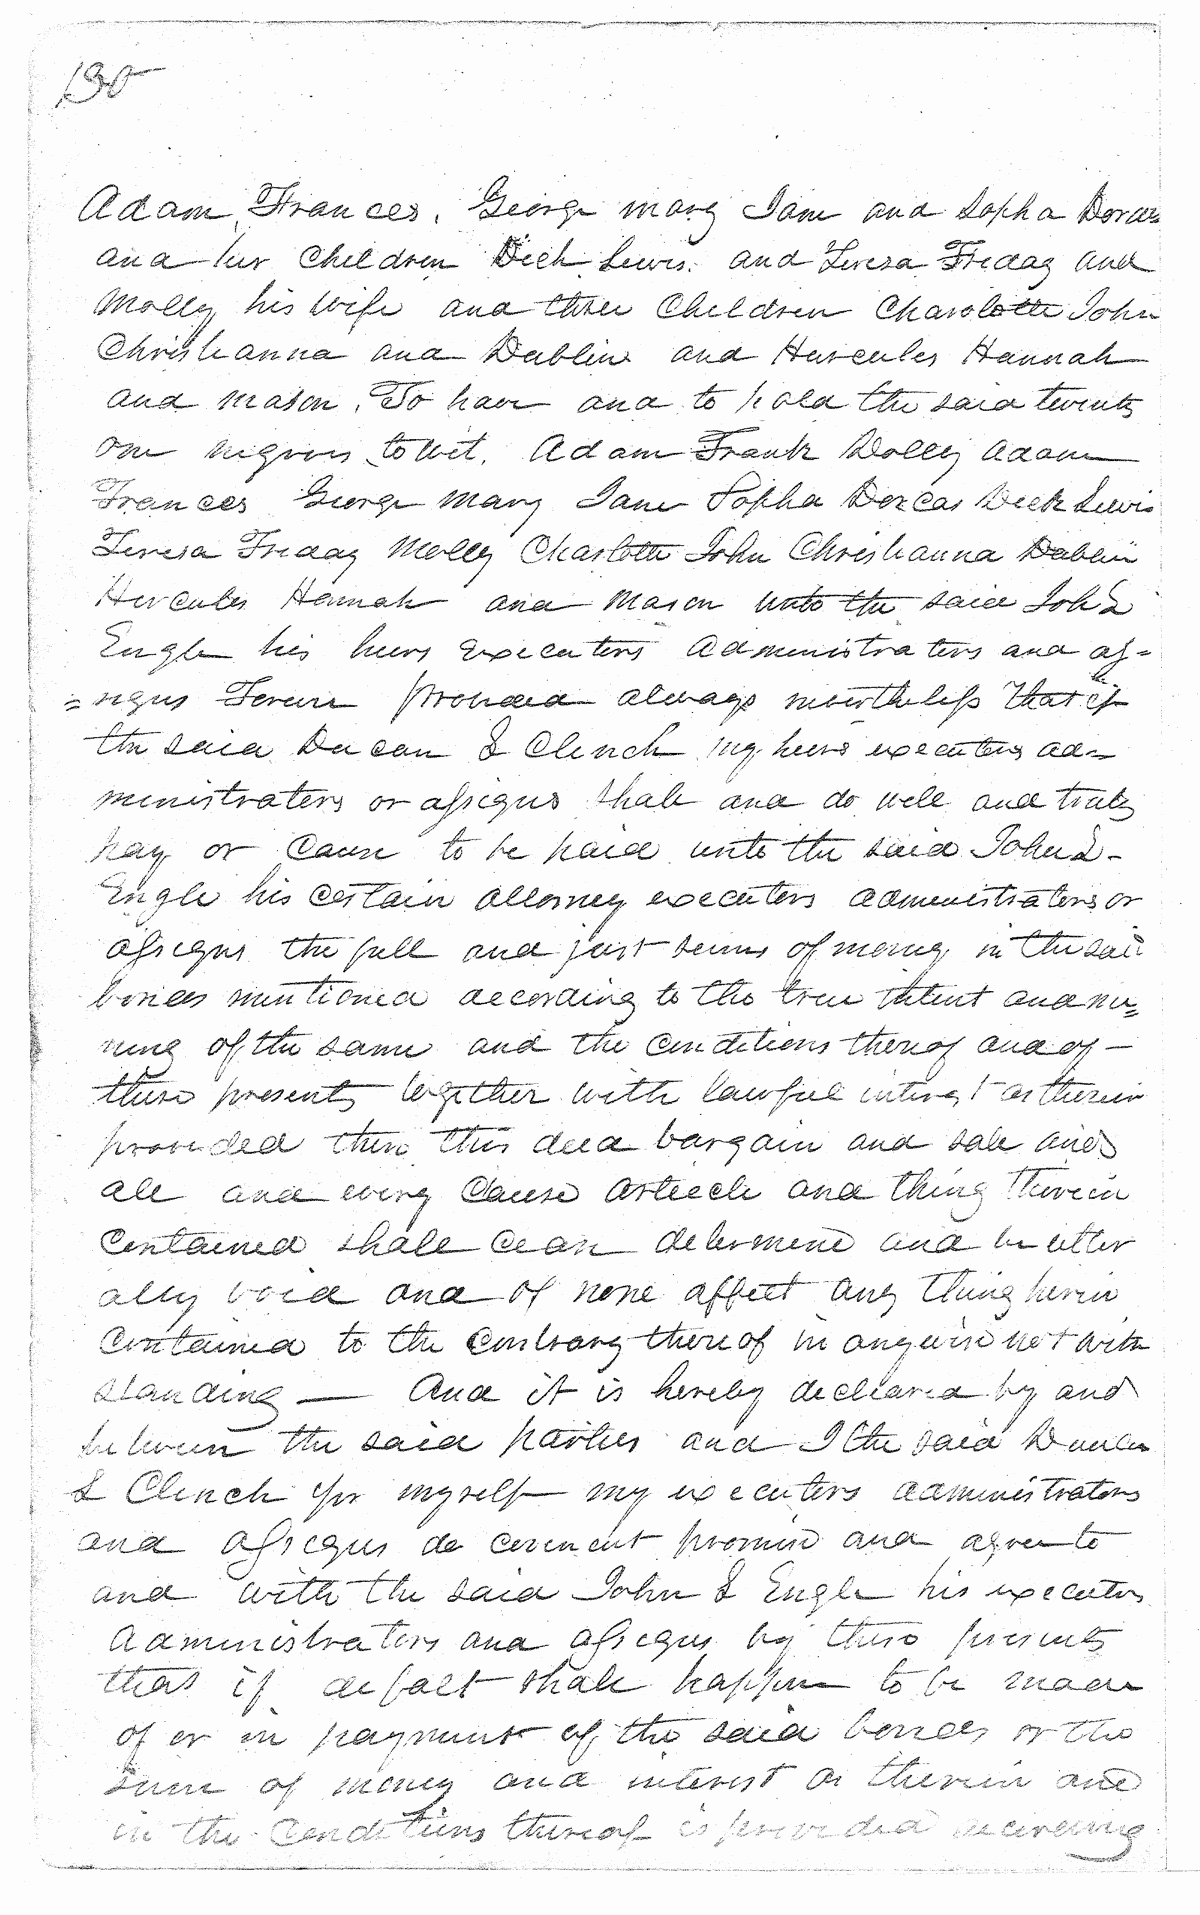 130
Adam, Frances, George mary Jane and Sopha Dorcas
and her Children Dick Lewis. and Teresa Friday and
Molly his wife and three Children Charolotte John
Christianna and Dublin and Hercules Hannah
and mason. To have and to hold the said twenty
one negroes to wit. Adam Frank Dolley Adam
Frances George Mary Jane Sopha Dorcas Dick Lewis
Teresa Friday Molly Charlotte John Christianna Dublin
Hercules Hannah and Mason unto the said John L
Engle his heirs executers administrators and as-
=signs Forever Provided always nevertheless That if
the said Ducan L Clinch my heirs executers ad=
ministraters or assigns shall and do well and truly
pay or cause to be paid unto the said John L-
Engle his certain attorney executers administraters or
assigns the full and just sums of money in the said
bonds mentioned according to the true intent and me=
ning of the same and the conditions thereof and of -
these presents together with lawful interest as therein
provided then this deed bargain and sale and
all and every Clause article and thing Therein
contained shall cean determine and be utter
ally void and of none affect any thing herein
contained to the contrary thereof in anywise not with
standing — And it is hereby decleared by and
between the said parties and I the said Duncan
L Clinch for myself my executers administrators
and assigns do covenent promise and agree to
and with the said John L Engle his executers
Administraters and assigns by these presents
that if defalt shall happen to be made
of or in payment of the said bonds or the
sum of money and interest as therein and
in the conditions thereof is provided according